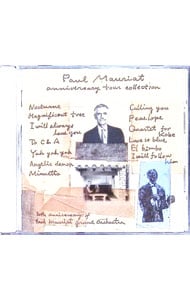 Paul Mauriat
anniversary tour collection
Nocturne
Magnificent tree
I will always
love you
To C & A
Yah yah yah
Angelic demon
Minuetto
Calling you
Penelope
Quartet for
Kobe
Love is blue
El bimbo
I will follow
him
30th anniversary of
Paul Mauriat grand Orchestra